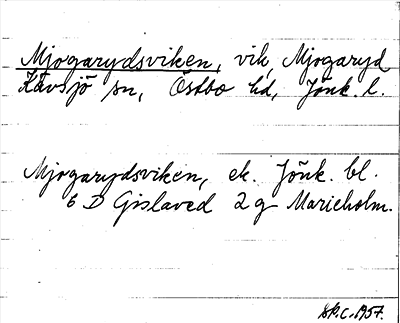 Mjogarydsviken, vik, Mjogaryd
Kävsjö sn, Östbo hd, Jönk. l.
Mjogarydsviken, ek. Jönk. bl.
6 D Gislaved 2 g Marieholm.
1957.